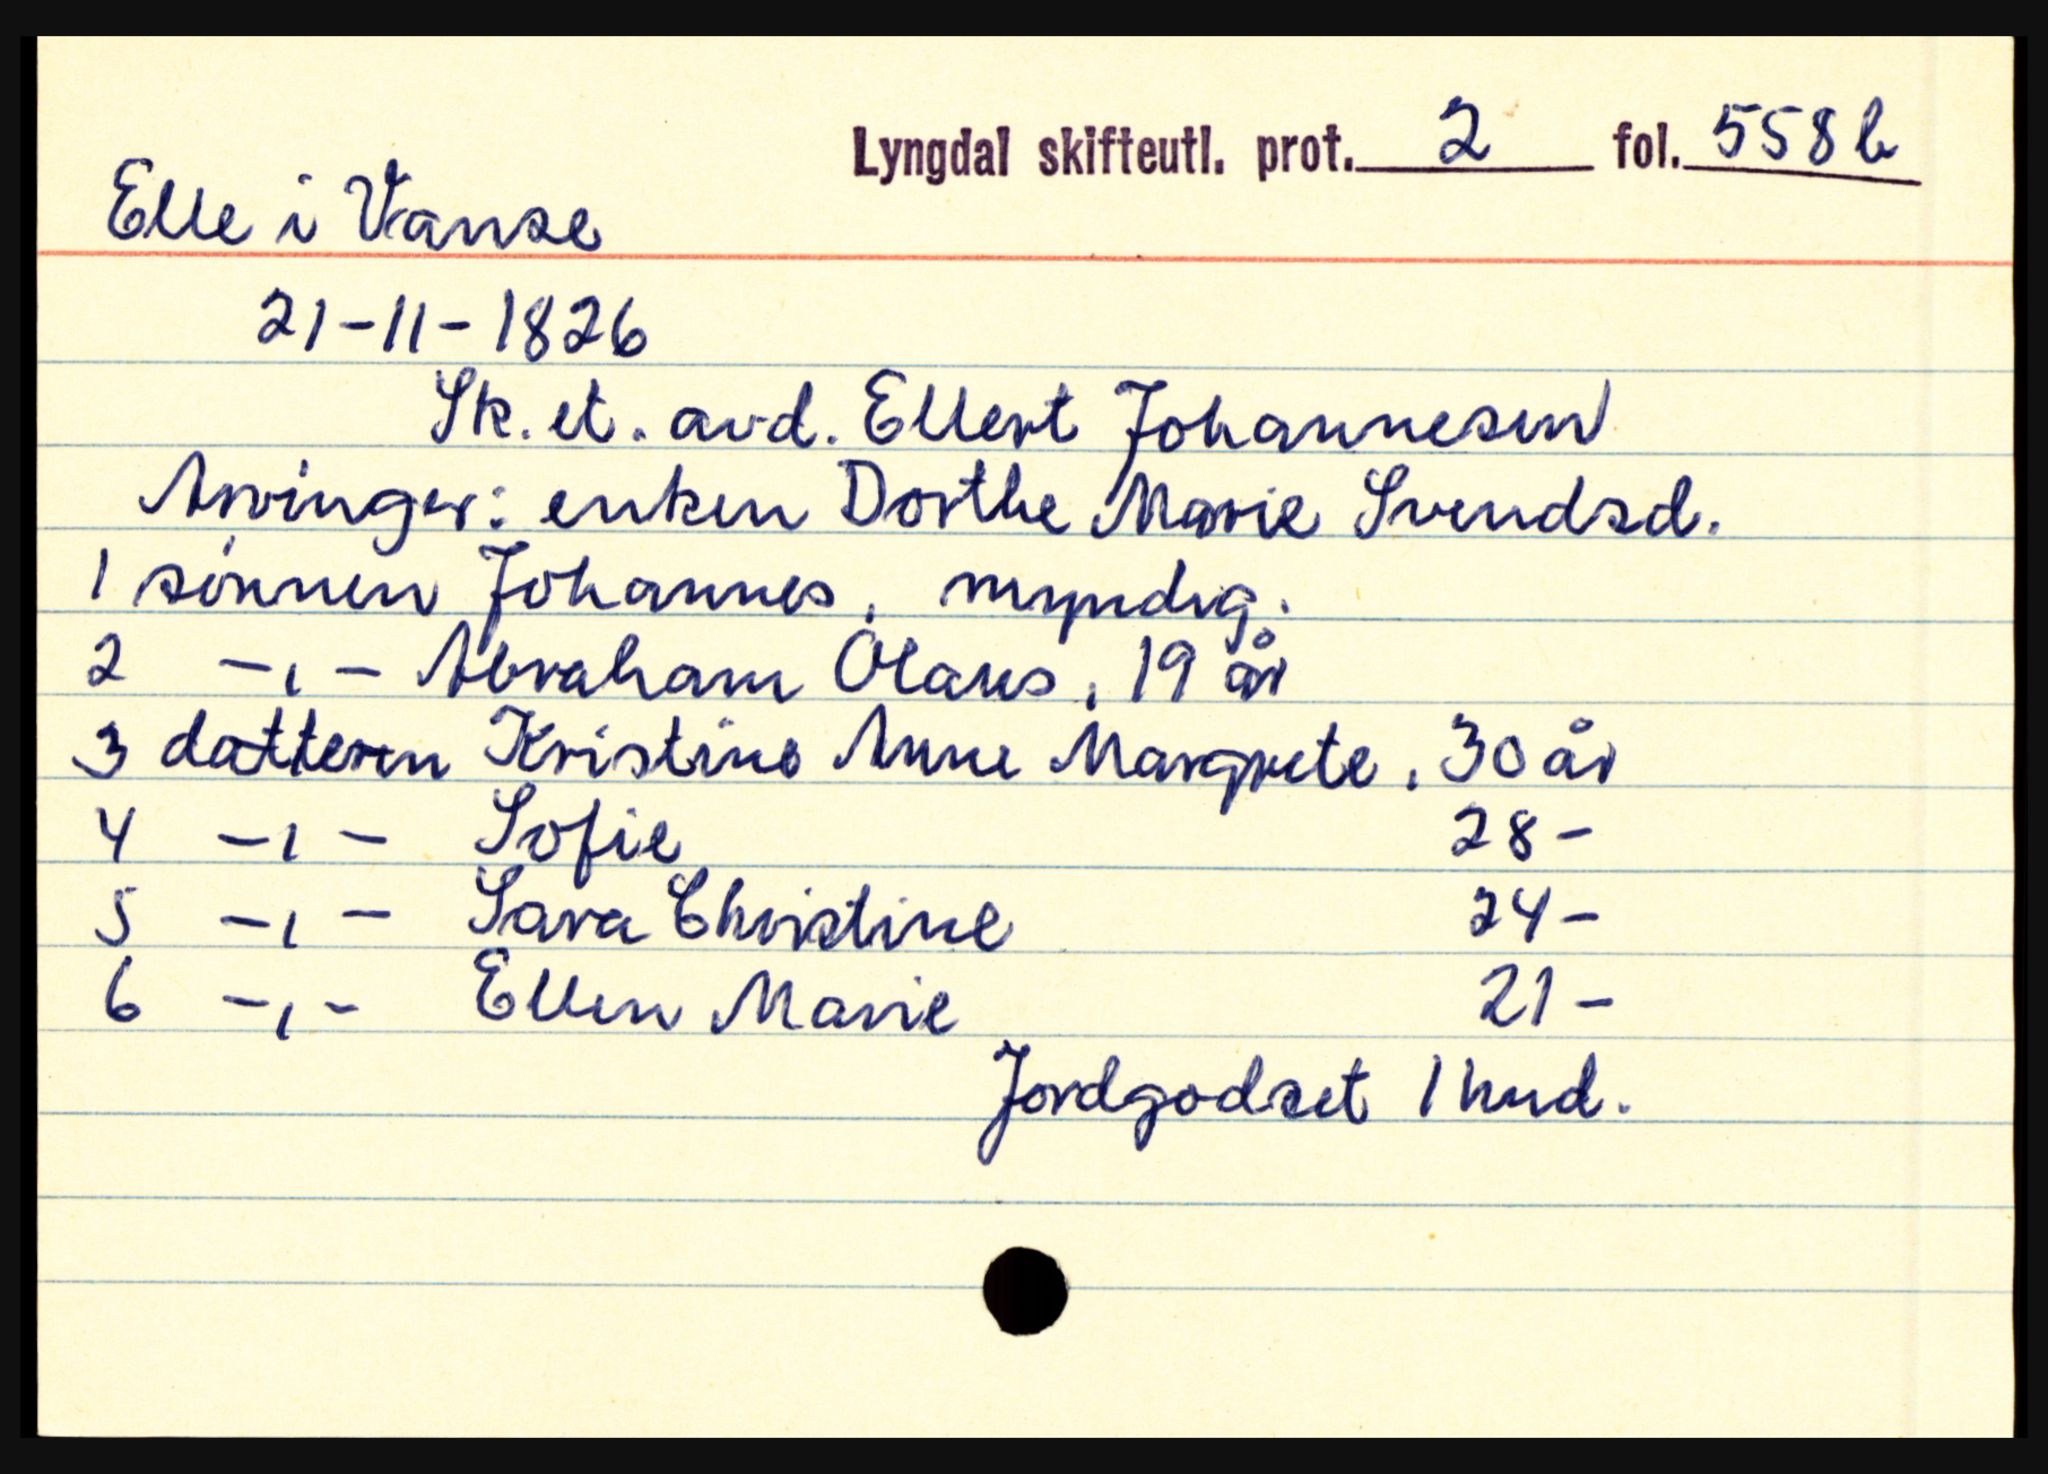 Lyngdal skifteutl. prot. 2 fol. 558 b
Elle i Vanse
21-11-1826
Sk. et. avd. Ellert Johannesen
Arvinger: enken Dorthe Marie Svendsd.
1 sønnen Johannes, myndig.
2 -,- Abraham Olaus, 19 år
3 datteren Kristine Anne Margrete, 30 år
4 -,- Sofie 28-
5 -,- Sara Christine 24-
6 -,- Ellen Marie 21-
Jordgodset 1 hud.